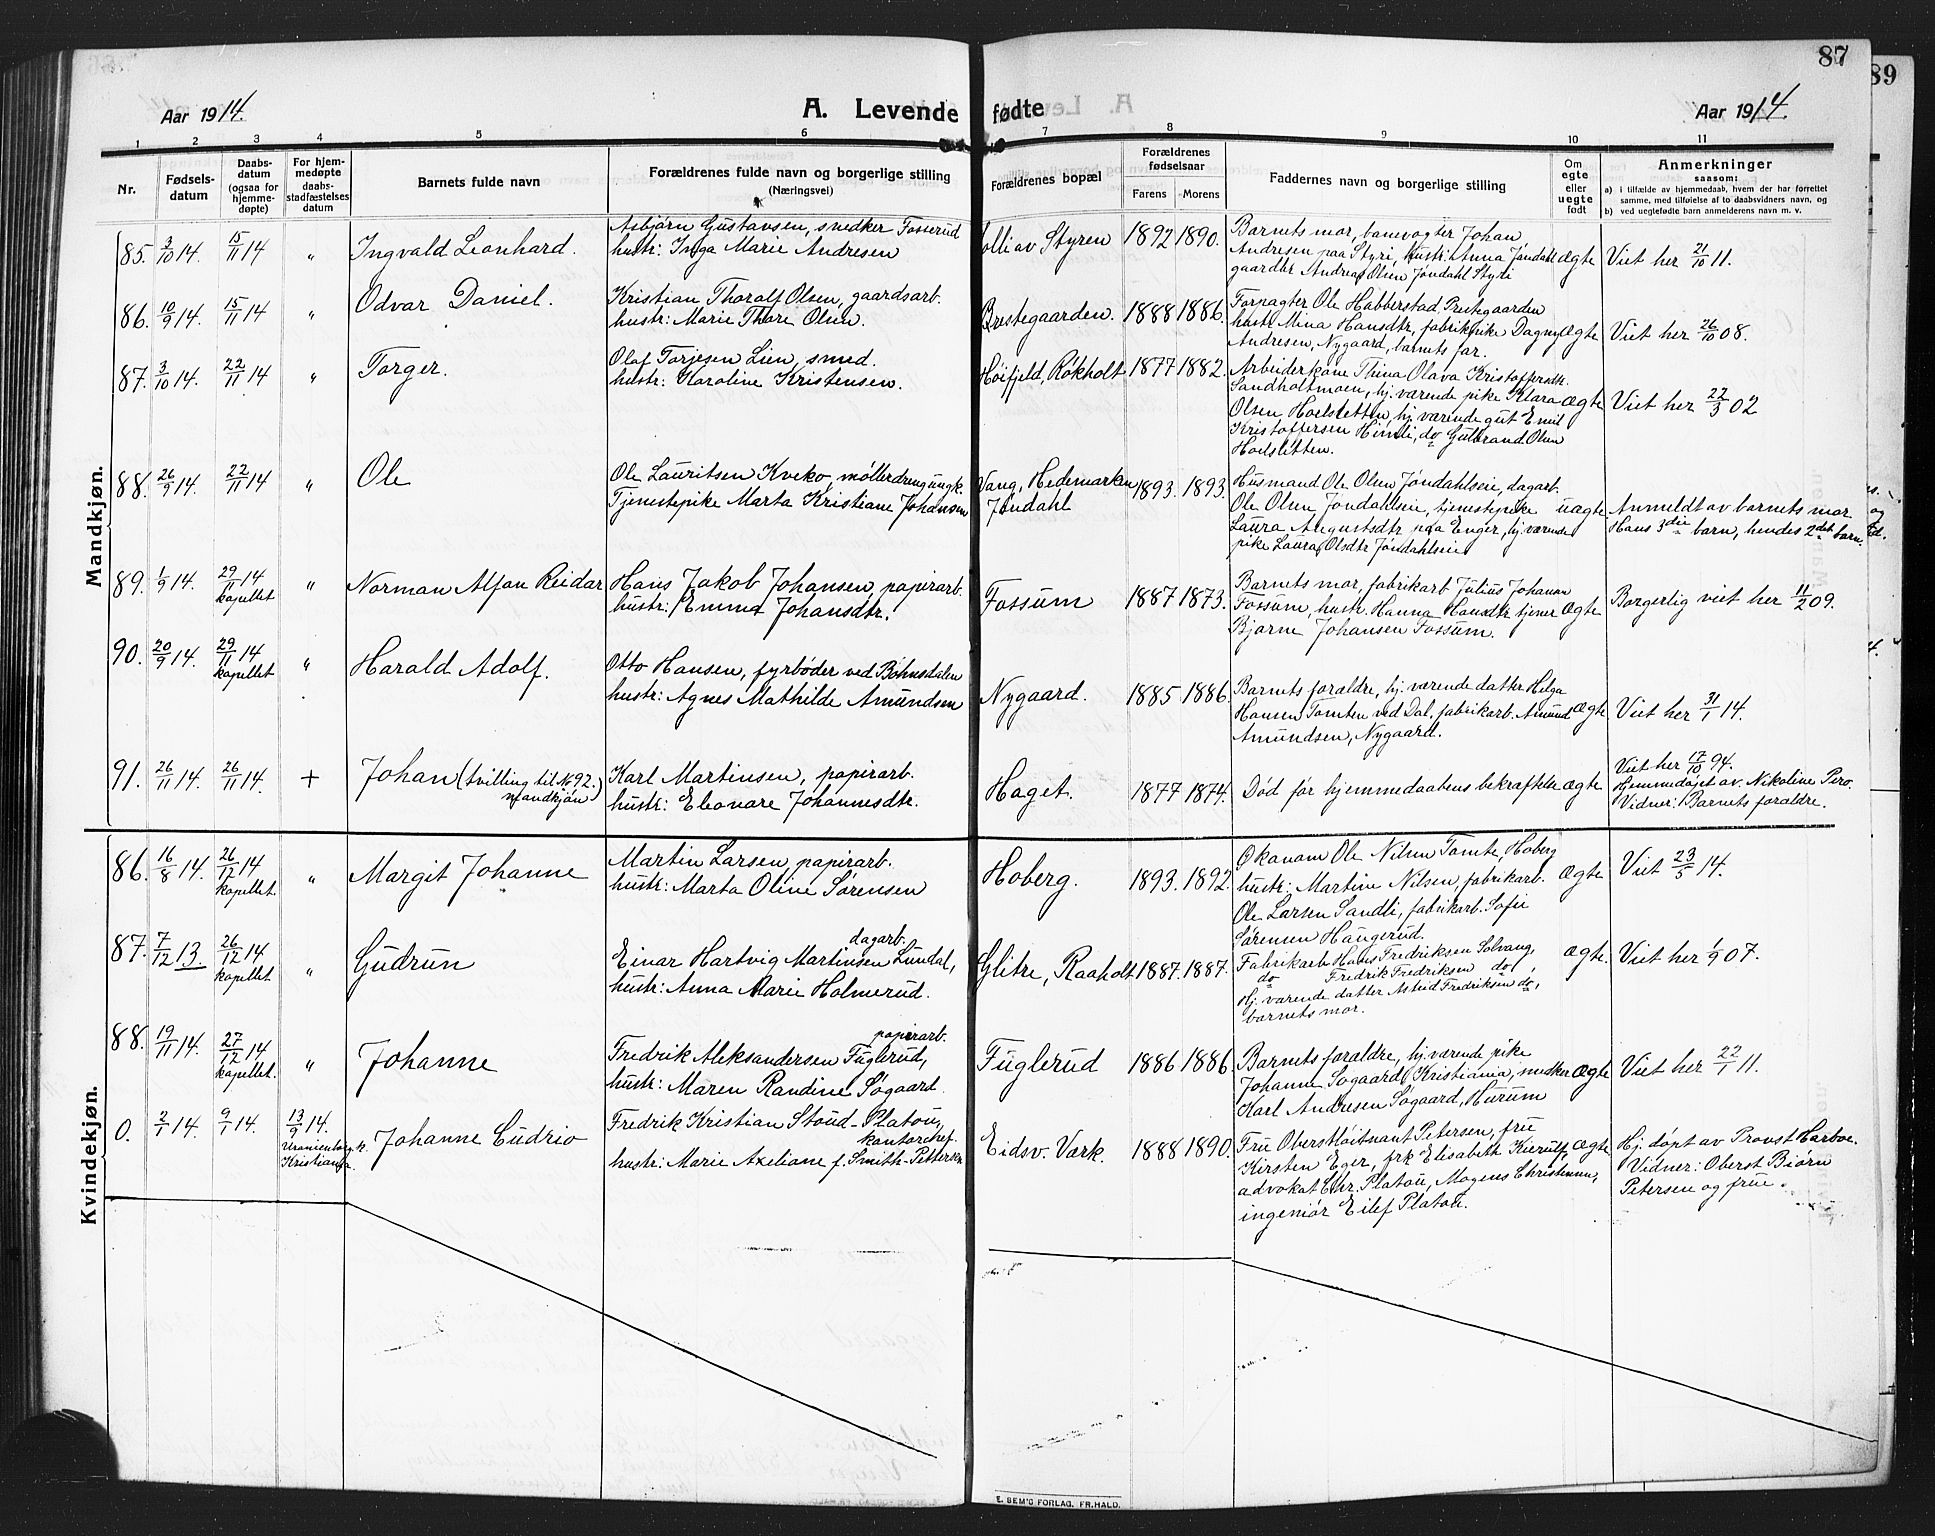 87
89
Aar 1914.
A. Levende
fødte
Aar 1914.
1 2 3 4 5 6 7 8 9 10 11
Nr.
Fødsels-
datum
Daabs-
datum
(ogsaa for
hjemme-
døpte)
For hjem-
medøpte
daabs-
stadfæstelses
datum
Barnets fulde navn
Forældrenes fulde navn og borgerlige stilling
(Næringsvei)
Forældrenes bopæl
Forældrenes
fødselsaar
Farens Morens
Faddernes navn og borgerlige stilling
Om
egte
eller
uegte
født
Anmerkninger
saasom:
a) i tilfælde av hjemmedaab, hvem der har forrettet
samme, med tilføielse af to daabsvidners navn, og
b) ved uegtefødte barn anmelderens navn m. v.
Mandkjøn.
85. 3/10 14. 15/11 14 „ Ingvald Leonhard.
Asbjørn Gustavsen, snedker Fosserud
hustr: Inga Marie Andresen
olli av Styren 1892 1890.
Barnets mor, banevogter Johan
Andresen paa Styri, hustr: Anna Jøndahl
gaardbr Andreas Olsen Jøndahl Styri
Ægte Viet her 21/10 11.
86. 10/9 14. 15/11 14 „ Odvar Daniel.
Kristian Thoralf Olsen, gaardsarb.
hustr: Marie Thore Olsen.
Prestegaarden. 1888 1886.
Forpagter Ole Habberstad, Prestegaarden
hustr. Mina Hansdtr, fabrikpike Dagny
Andresen, Nygaard, barnets far.
Ægte Viet her 26/10 08.
87. 3/10 14. 22/11 14 „ Torger.
Olaf Torjesen Lien, smed.
hustr: Karoline Kristensen.
Høifjeld, Røkholt 1877 1882.
Arbeiderkone Thina Olava Kristoffersdtr.
Sandholtmoen, hj. værende pike Klara
Olsen Hoelsletten, hj. værende gut Emil
Kristoffersen Himli, do Gulbrand Olsen
Hoelsletten.
Ægte Viet her 22/3 02
88. 26/9 14. 22/11 14 „ Ole
Ole Lauritsen Kveko, møllerdreng ungk.
Tjenestepike Marta Kristiane Johansen
Vang, Hedemarken
Jøndahl
1893. 1893.
Husmand Ole Olsen Jøndahlseie, dagarb.
Ole Olsen Jøndahlseie, tjenestepike
Laura Augustsdtr paa Enger, hj. værende
pike Laura Olsdtr Jøndahlseie
uægte Anmeldt av barnets mor
Hans 3die barn, hendes 2det barn.
89. 1/9 14. 29/11 14 kapellet „ Norman Alfan Reidar
Hans Jakob Johansen, papirarb.
hustr: Emma Johansdtr.
Fossum 1887 1873.
Barnets mor, fabrikarb Julius Johansen
Fossum, hustr. Hanna Hansdtr, tjener
Bjarne Johansen Fossum.
Ægte Borgerlig viet her 11/2 09.
90. 20/9 14. 29/11 14 kapellet „ Harald Adolf.
Otto Hansen, fyrbøder ved Bøhnsdalen
hustr: Agnes Mathilde Amundsen
Nygaard. 1885 1886.
Barnets foraldre, hj. værende datter Helga
Hansen Tomten ved Dal, fabrikarb. Amund
Amundsen, Nygaard.
Ægte Viet her 31/1 14.
91. 26/11 14. 26/11 14. + Johan (tvilling til No 92.
mandkjøn)
Karl Martinsen, papirarb.
hustr: Eleonore Johannesdtr.
Haget. 1877 1874.
Død før hjemmedaabens bekræftelse Ægte
Viet her 17/10 94.
Hjemmedøpt av. Nikoline Pero.
Vidner: Barnets foraldre.
Kvindekjøn.
86. 16/8 14. 26/12 14 kapellet „ Margit Johanne
Martin Larsen, papirarb.
hustr: Marta Oline Sørensen
Hoberg. 1893. 1892.
Økonom Ole Nilsen Tomte, Hoberg
hustr: Martine Nilsen, fabrikarb.
Ole Larsen Sandli, fabrikarb. Sofie
Sørensen Haugerud.
Ægte Viet 23/5 14.
87. 7/12 13. 26/12 14 kapellet „ Gudrun
dagarb.
Einar Hartvig Martinsen Lundal,
hustr: Anna Marie Holmerud.
Glitre, Raaholt 1887. 1887.
Fabrikarb Hans Fredriksen Solvang,
do Fredrik Fredriksen do,
Hj. værende datter Astrid Fredriksen do,
barnets mor.
Ægte. Viet her 1/9 07.
88. 19/11 14. 27/12 14 kapellet. „ Johanne
papirarb.
Fredrik Aleksandersen Fuglerud,
hustr: Maren Randine Søgaard.
Fuglerud 1886 1886.
Barnets foraldre, hj. værende pike
Johanne Søgaard, Kristiania, snedker
Karl Andresen Søgaard, Hurum
Ægte Viet her 22/1 11.
0. 2/1 14. 9/1 14. 13/9 14.
Uranienborg k.
Kristiania
Johanne Cudrio
Fredrik Kristian Stoud-Platou,
kontorchef.
hustr: Marie Axeliane f. Smith-Petersen
Eidsv. Værk. 1888 1890.
Fru Oberstløitnant Petersen, fru
Kirsten Eger, frk Elisabeth Kierulf,
advokat Chr. Platou, Mogens Christensen,
ingeniør Eilef Platou.
Ægte Hj. døpt av Provst Harboe.
Vidner: Oberst Biørn
Petersen og frue.
E. SEM'S FORLAG, FR.HALD.